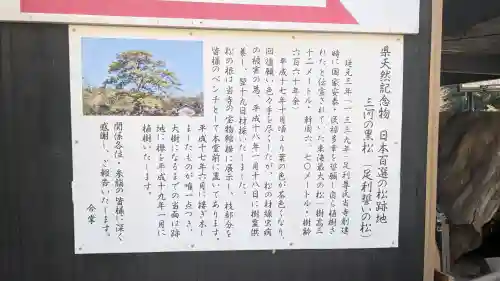 県天然記念物 日本百選の松跡地
三河の重松 (足利誓いの松)
延元三年(一三三九年)足利尊氏当寺創建
時に国家安泰・民福多幸を祈願し自ら植樹さ
れたと伝宣されていた東海最大の松(樹高三
十二メートル・幹周六、七〇メートル・樹齢
六百六十年余)
平成十七年十月頃より葉の色が茶色くなり、
回復願い色々手を尽くしたが、松の材線虫病
の被害の為、平成十八年一月十八日に樹霊供
養し、翌十九日材採いたしました。
松の根は当寺の宝物館横に展示し、枝部分を
皆様のベンチとして本堂前に置いてあります。
平成十七年六月に接ぎ木し
ましたものが唯一点つき、
大樹になるまでの当面は跡
地に樺を平成十九年一月に
植樹いたします。
関係各位・参詣の皆様に深く
感謝し、ご報告いたします。
合掌